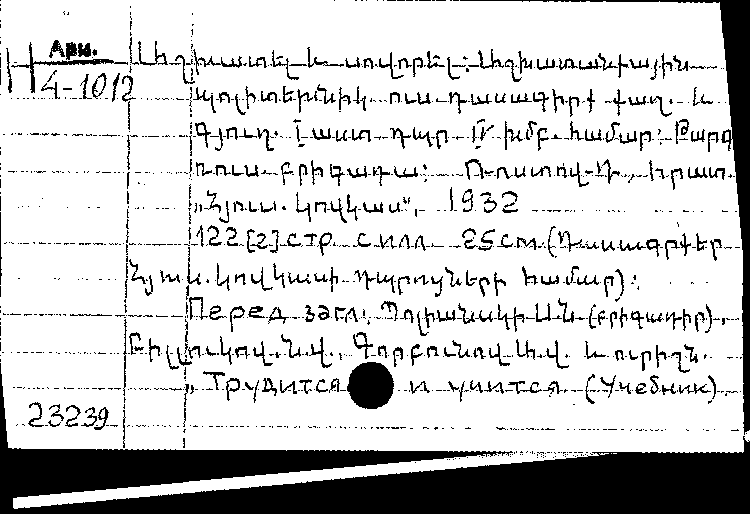 Арм.
4-1012
Աշխատել և սովորել: Աշխատանքային
պոլիտեխնիկ. ուս. դասագիրք քաղ. և
գյուղ. I աստ. դպր. IV խմբ. համար: Թարգ
ռուս. բրիգադա: Ռոստով-Դ., Հրատ.
„Հյուս. կովկաս“, 1932
122 [2] стр. с илл. 25 cm. (Դասագրքեր
Հյուս. կովկասի դպրոցների համար):
Перед загл.: Պոլիանսկի Ա.Ն. (բրիգադիր),
Ն.Վ., Գորբունով և ուրիշն.
„Трудится и учится. (Учебник).
23239